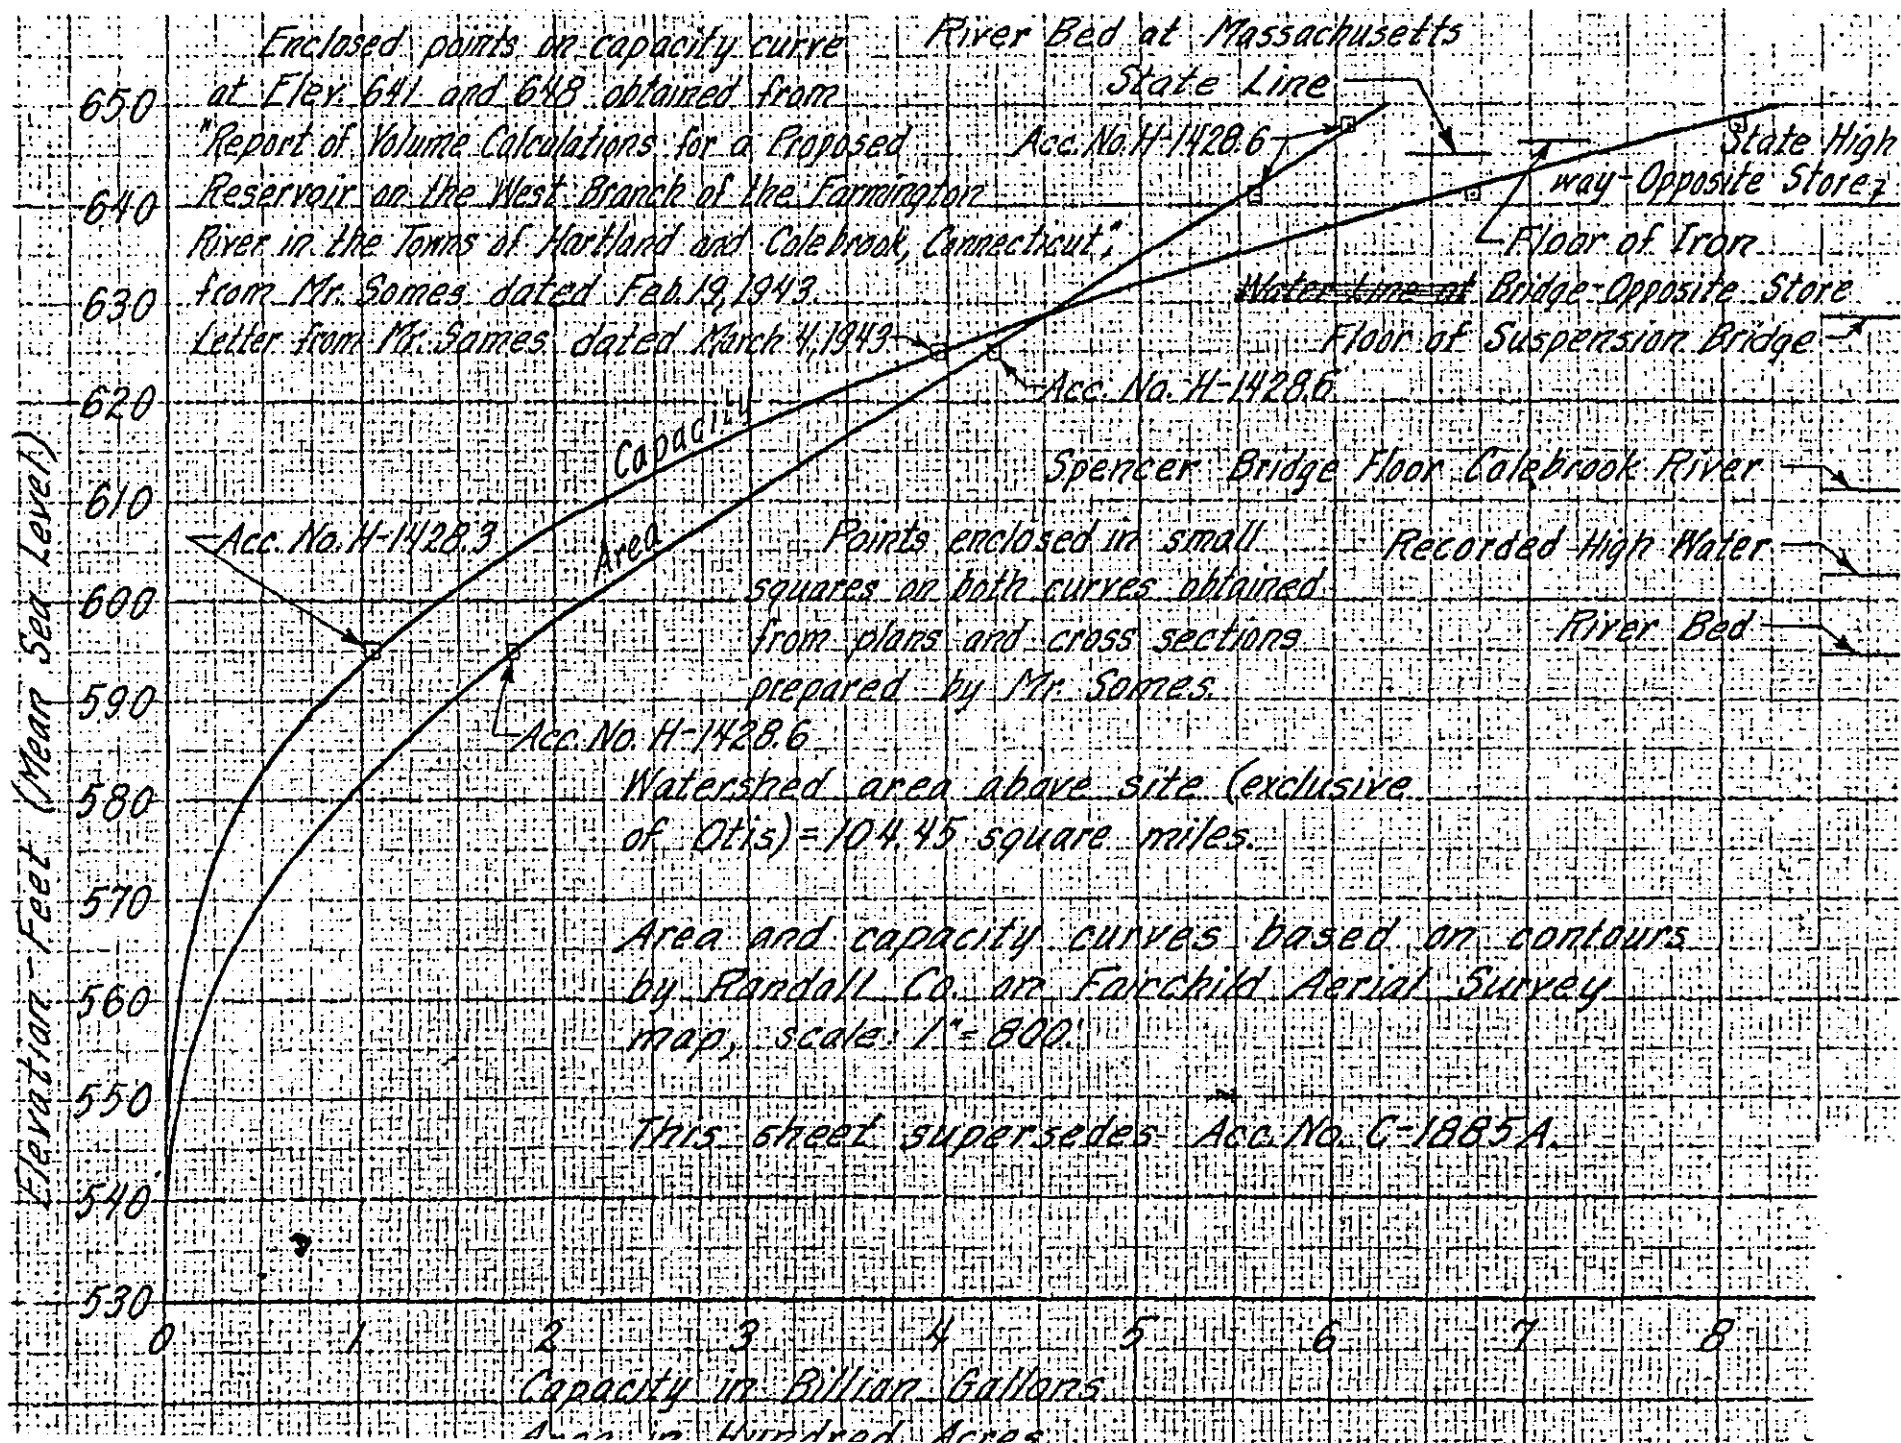 Enclosed points on capacity curve
at Elev. 641 and 648 obtained from
"Report of Volume Calculations for a Proposed
Reservoir on the West Branch of the Farmington
River in the Towns of Hartland and Colebrook, Connecticut",
from Mr. Somes dated Feb. 19, 1943.
Letter from Mr. Somes dated March 4, 1943
River Bed at Massachusetts
State Line
Acc. No. H-1428.6
State High
way-Opposite Store
Floor of Iron
Water Line at Bridge-Opposite Store
Floor of Suspension Bridge
Acc. No. H-1428.6
Capacity
Area
Spencer Bridge Floor Colebrook River
Acc. No. H-1428.3
Points enclosed in small
squares on both curves obtained
from plans and cross sections
prepared by Mr. Somes.
Recorded High Water
River Bed
Acc. No. H-1428.6
Watershed area above site (exclusive
of Otis) = 104.45 square miles.
Area and capacity curves based on contours
by Randall Co. on Fairchild Aerial Survey
map, scale: 1" = 800'.
This sheet supersedes Acc. No. C-1885A.
Elevation-Feet (Mean Sea Level)
650
640
630
620
610
600
590
580
570
560
550
540
530
0 1 2 3 4 5 6 7 8
Capacity in Billion Gallons
Area in Hundred Acres